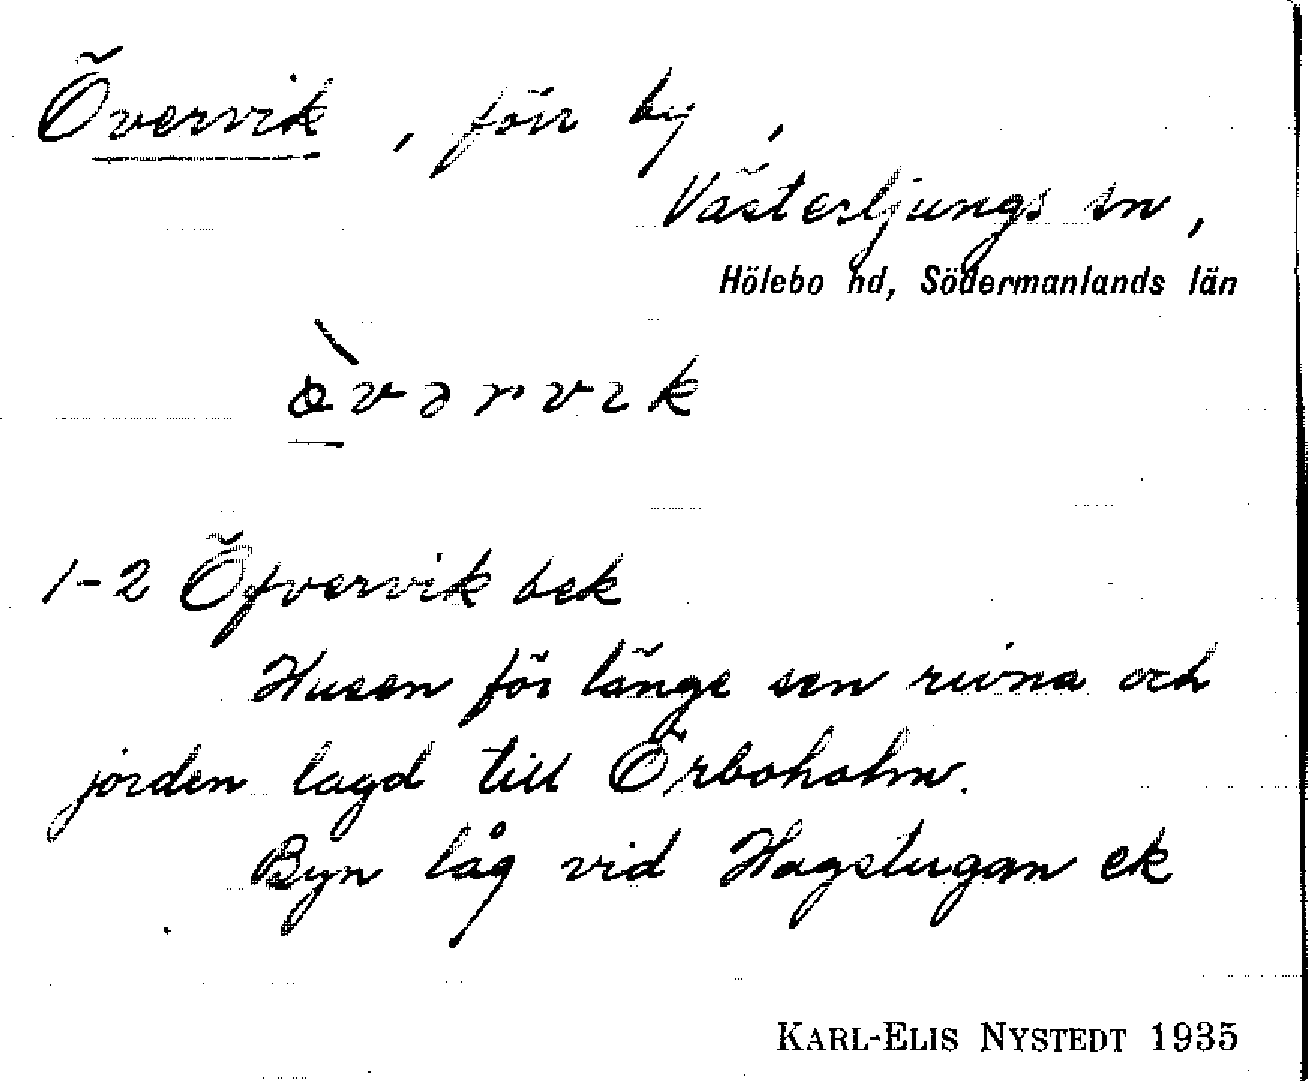 Övervik, förr by,
Västerljungs sn,
Hölebo hd, Södermanlands län
ö̀vərvɪk
1-2 Öfvervik bek
Husen för länge sen rivna och
jorden lagd till Örboholm.
Byn låg vid Hagstugan ek
KARL-ELIS NYSTEDT 1935